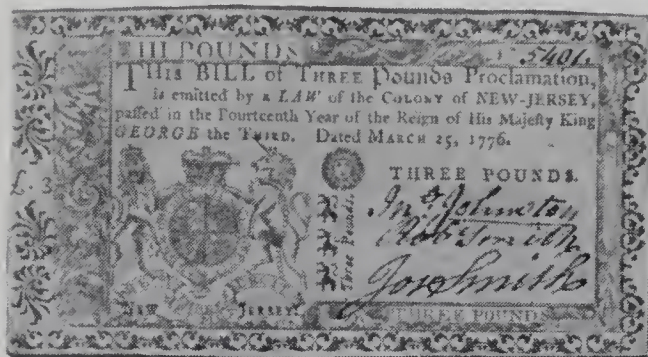 III POUNDS 5401.
THis BILL of THREE Pounds Proclamation,
is emitted by a LAW of the COLONY of NEW-JERSEY,
paſſed in the Fourteenth Year of the Reign of His Majeſty King
GEORGE the THIRD. Dated MARCH 25, 1776.
£. 3
THREE POUNDS.
Three Pounds.
Jno. Johnston
Rob Smith
Jos Smith
NEW JERSEY
THREE POUNDS